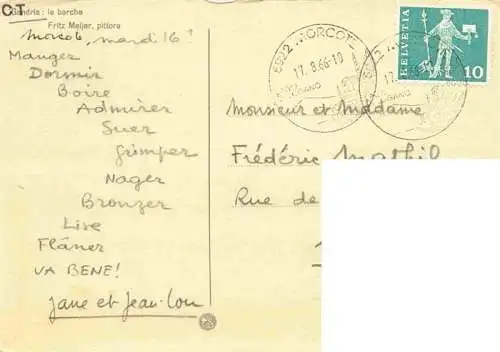 C.T
Gandria : le barche
Fritz Meijer, pittore
Morcote, mardi 16!
Manger
Dormir
Boire
Admirer
Suer
Grimper
Nager
Bronzer
Lire
Flâner
VA BENE!
Jane et Jean-Lou
6922 MORCOTE
17.8.66-10
LUGANO
HELVETIA
10
Monsieur et Maddame
Frédéric
Rue de